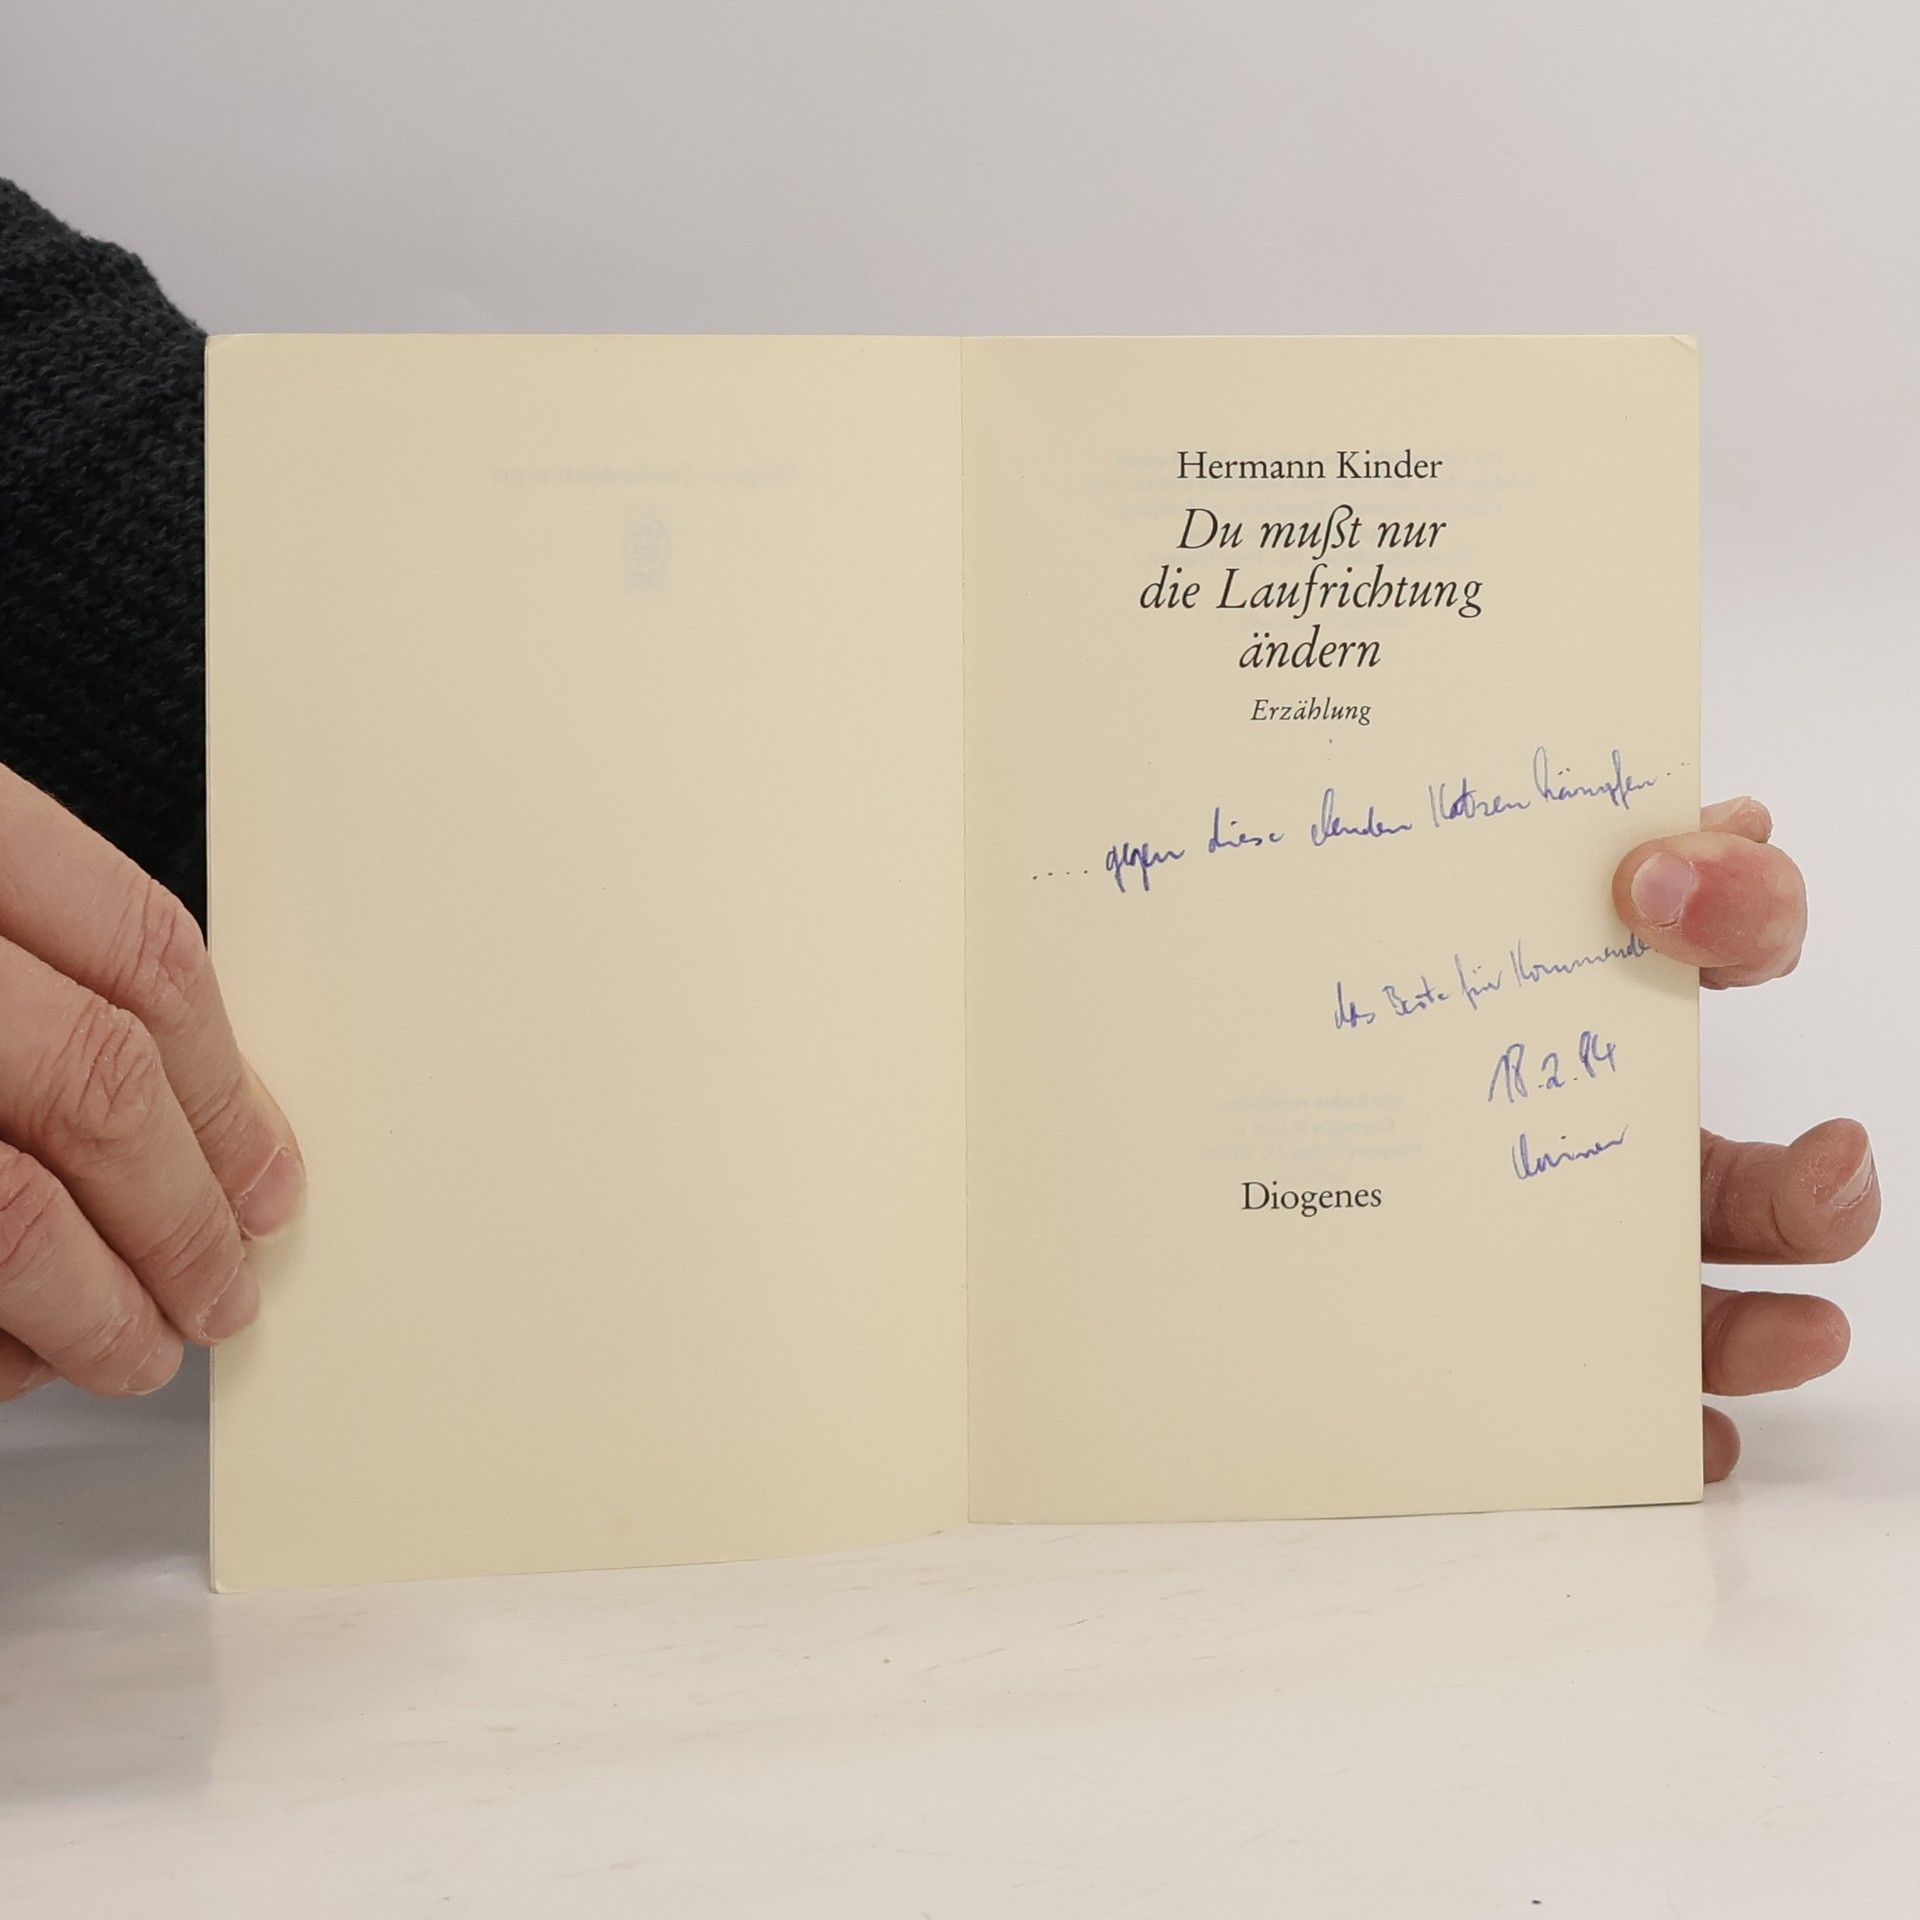 Hermann Kinder
Du mußt nur
die Laufrichtung
ändern
Erzählung
.... gegen diese elenden Katzen kämpfen ...
das Beste für Kommende
18.2.84
Diogenes